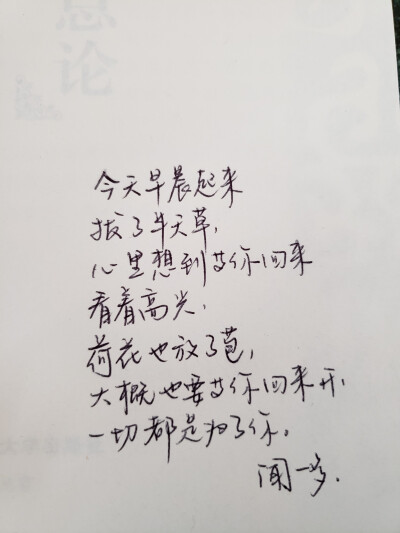 总论
今天早晨起来
拔了半天草，
心里想到等你回来
看着高兴，
荷花也放了苞，
大概也要等你回来开，
一切都是为了你。
闻一多.